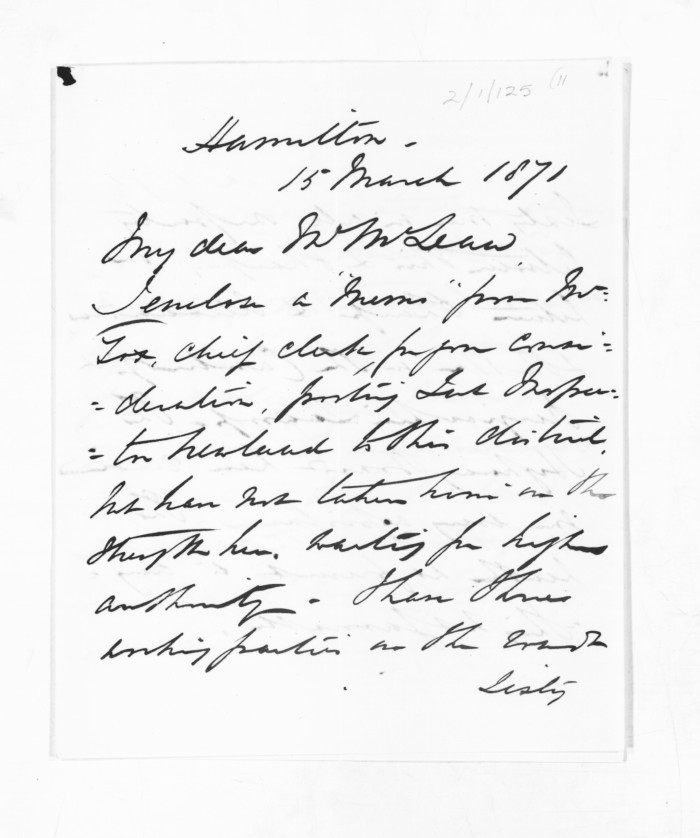 2/1/125 (11
Hamilton.
15 March 1871
My dear Mr McLean
I enclose a "Memo" from Mr
Fox, chief clerk, for your consi=
=deration, posting Sub Inspec=
=tor Newland to this district.
but have not taken him on the
strength here. waiting for higher
authority. I have three
working parties on the road
Sixty